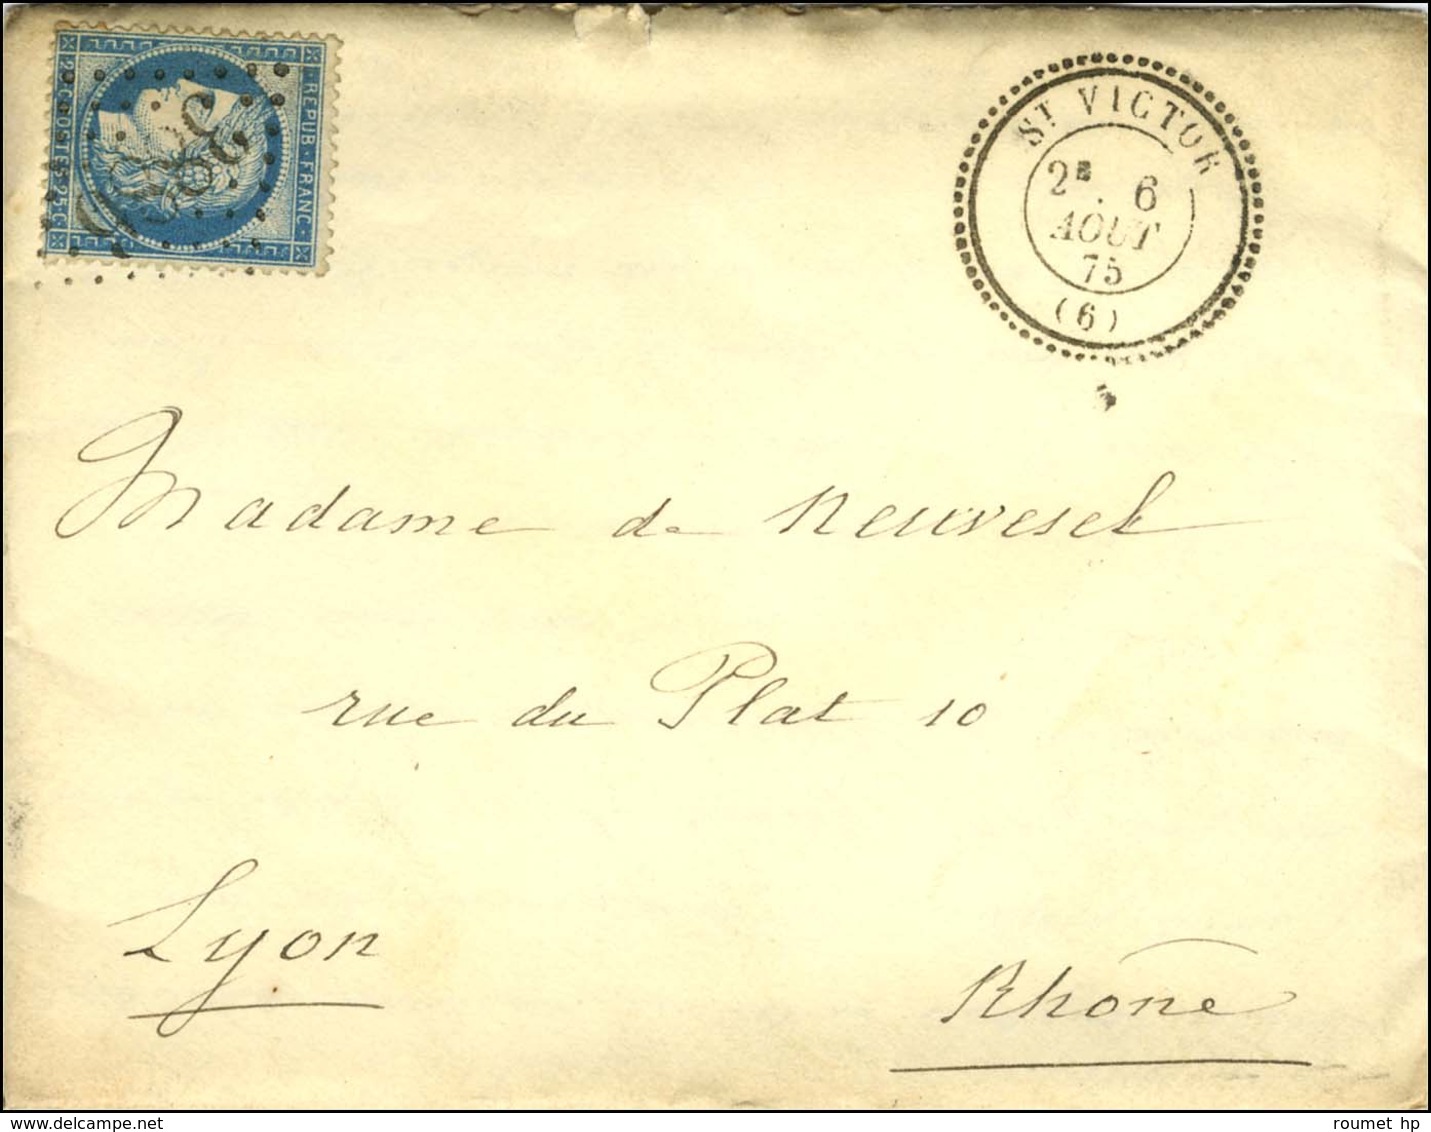 REPUB · FRANC ·
25 C · POSTES · 25 C ·
ST VICTOR
2E 6
AOUT
75
(6)
Madame de Neuvesel
rue du Plat 10
Lyon
Rhône
roumet hp